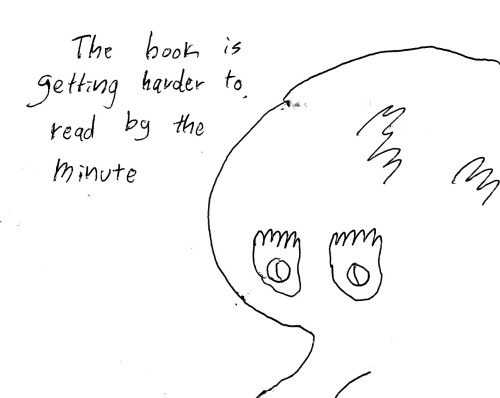 The book is
getting harder to
read by the
minute